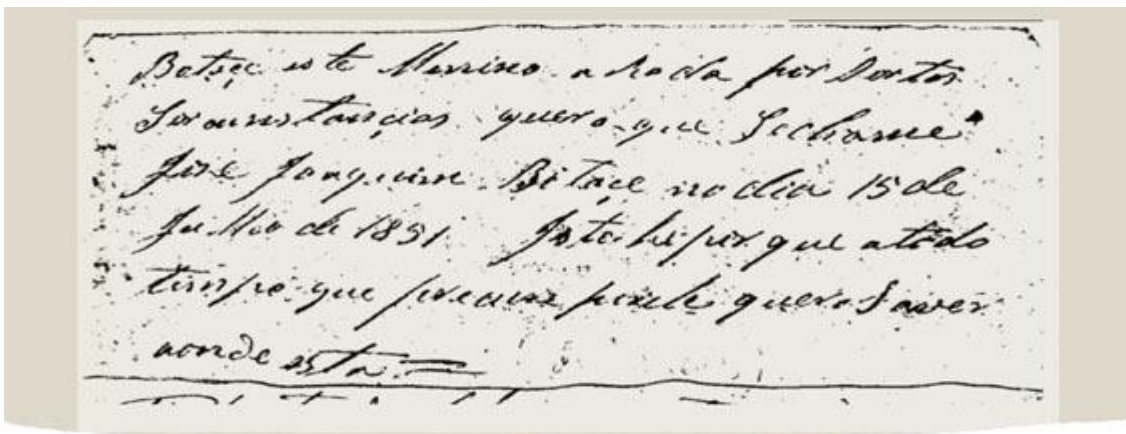 Botçe este Menino a Roda por Sertas
Sircunstancias quero que Sechame
José Joaquim Bitaçe no dia 15 de
Julho de 1851. Isto he por que atodo
tempo que precurar por ele quero Saver
aonde esta =